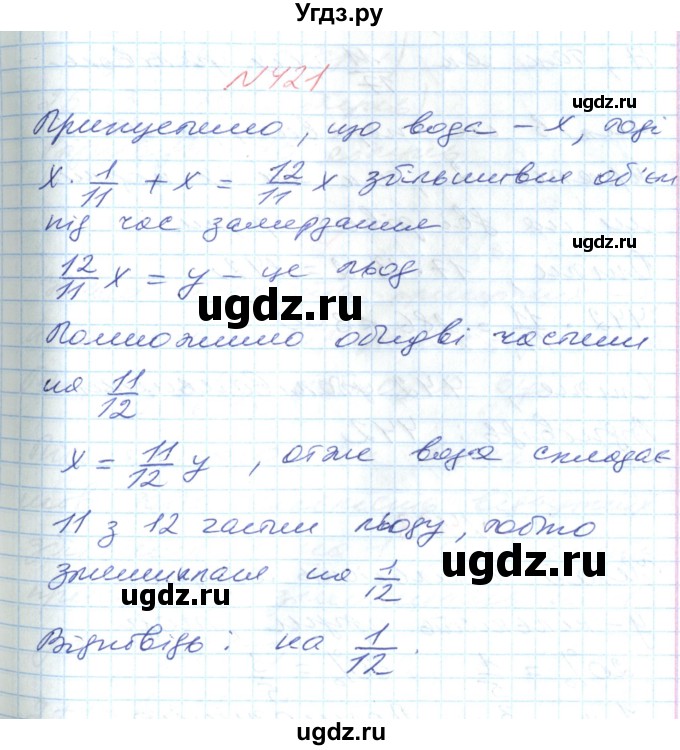 Угдз.ру
N421
Припустимо, що вода – x, тоді
ugdz.ru
x · 1/11 + x = 12/11 x збільшився об'єм
ugdz.ru
під час замерзання
ugdz.ru
12/11 x = y – це льод
ugdz.ru
Помножимо обидві частини
ugdz.ru
на 11/12
x = 11/12 y, отже вода складає
ugdz.ru
11 з 12 частин льоду, тобто
ugdz.ru
зменшилася на 1/12
ugdz.ru
Відповідь: на 1/12.
ugdz.ru
ugdz.ru